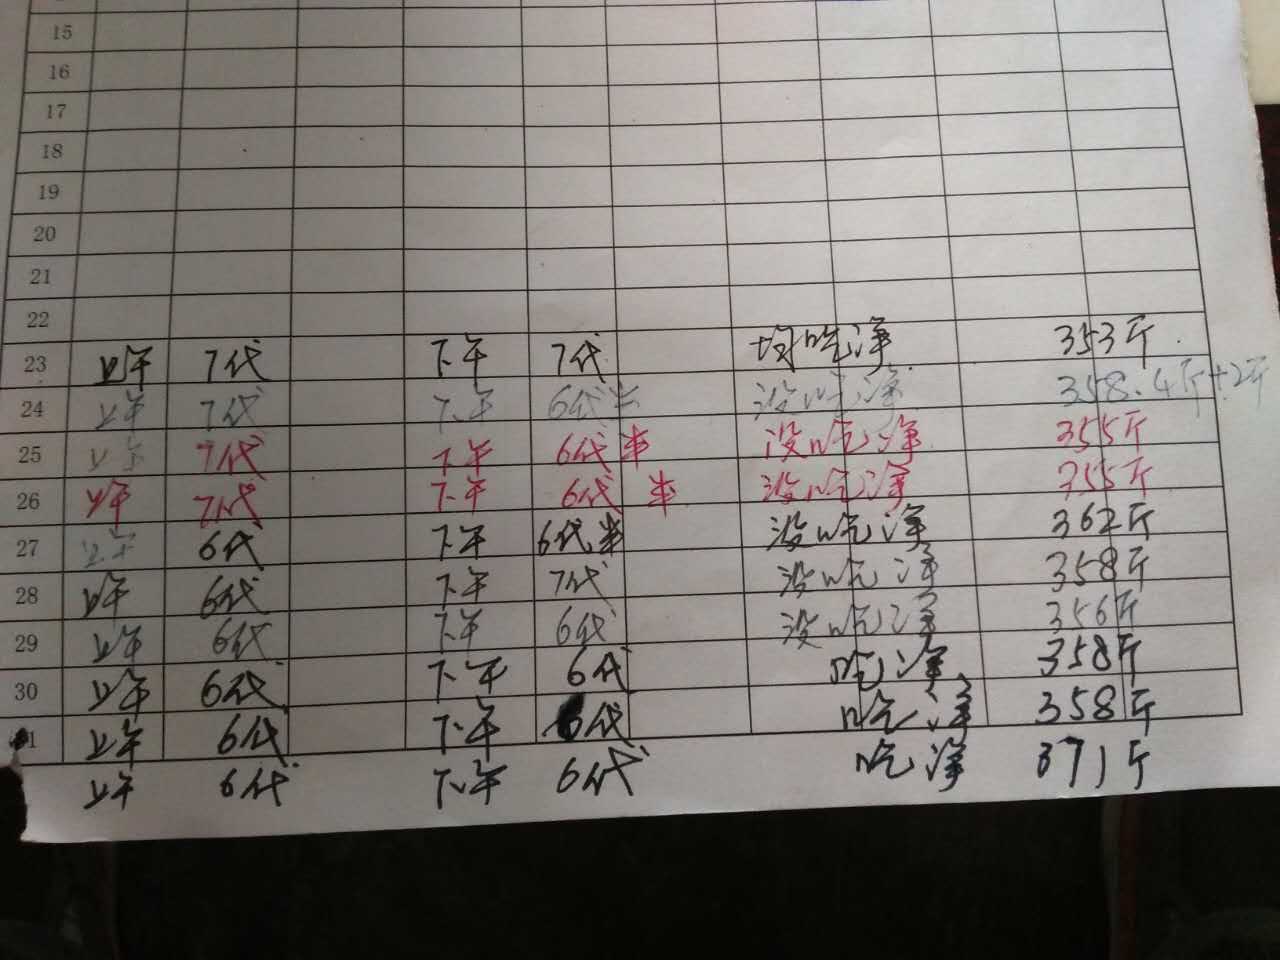 15
16
17
18
19
20
21
22
23 上午 7代 下午 7代 均吃净 353斤
24 上午 7代 下午 6代半 没吃净 358.4斤+2斤
25 上午 7代 下午 6代半 没吃净 355斤
26 上午 7代 下午 6代半 没吃净 355斤
27 上午 6代 下午 6代半 没吃净 362斤
28 上午 6代 下午 7代 没吃净 358斤
29 上午 6代 下午 6代 没吃净 356斤
30 上午 6代 下午 6代 吃净 358斤
1 上午 6代 下午 6代 吃净 358斤
上午 6代 下午 6代 吃净 371斤